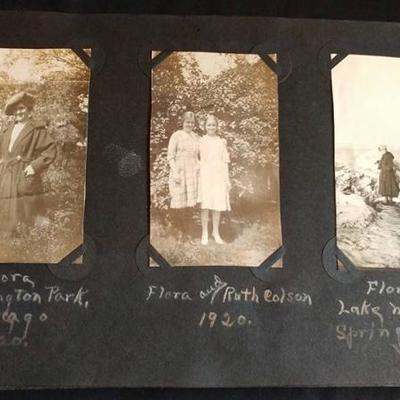 ora
ngton Park,
ago
20.
Flora and Ruth Colson
1920.
Flor
Lake M
Spring